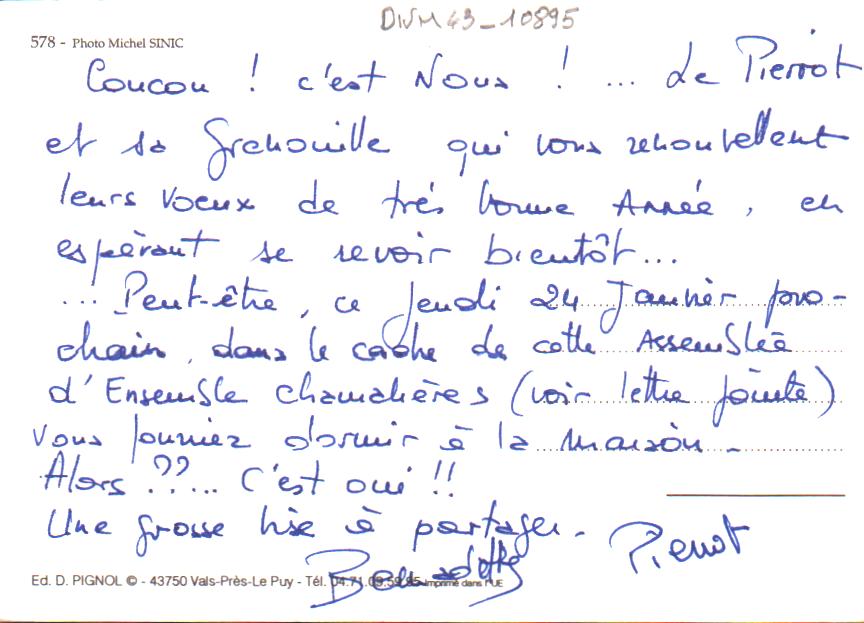 DWM 43_10895
578 - Photo Michel SINIC
Coucou ! c'est Nous ! ... Le Pierrot
et sa Grenouille qui vous renouvellent
leurs voeux de très bonne Année, en
espérant se revoir bientôt...
... Peut-être, ce Jeudi 24 Janvier pro-
chain, dans le cadre de cette Assemblée
d'Ensemble chamalières (voir lettre jointe)
vous pourriez dormir à la maison -
Alors ??... C'est oui !!
Une grosse bise à partager.
Pierrot
Bernadette
Ed. D. PIGNOL © - 43750 Vals-Près-Le Puy - Tél. 04.71.09.59.85 Imprimé dans l'UE